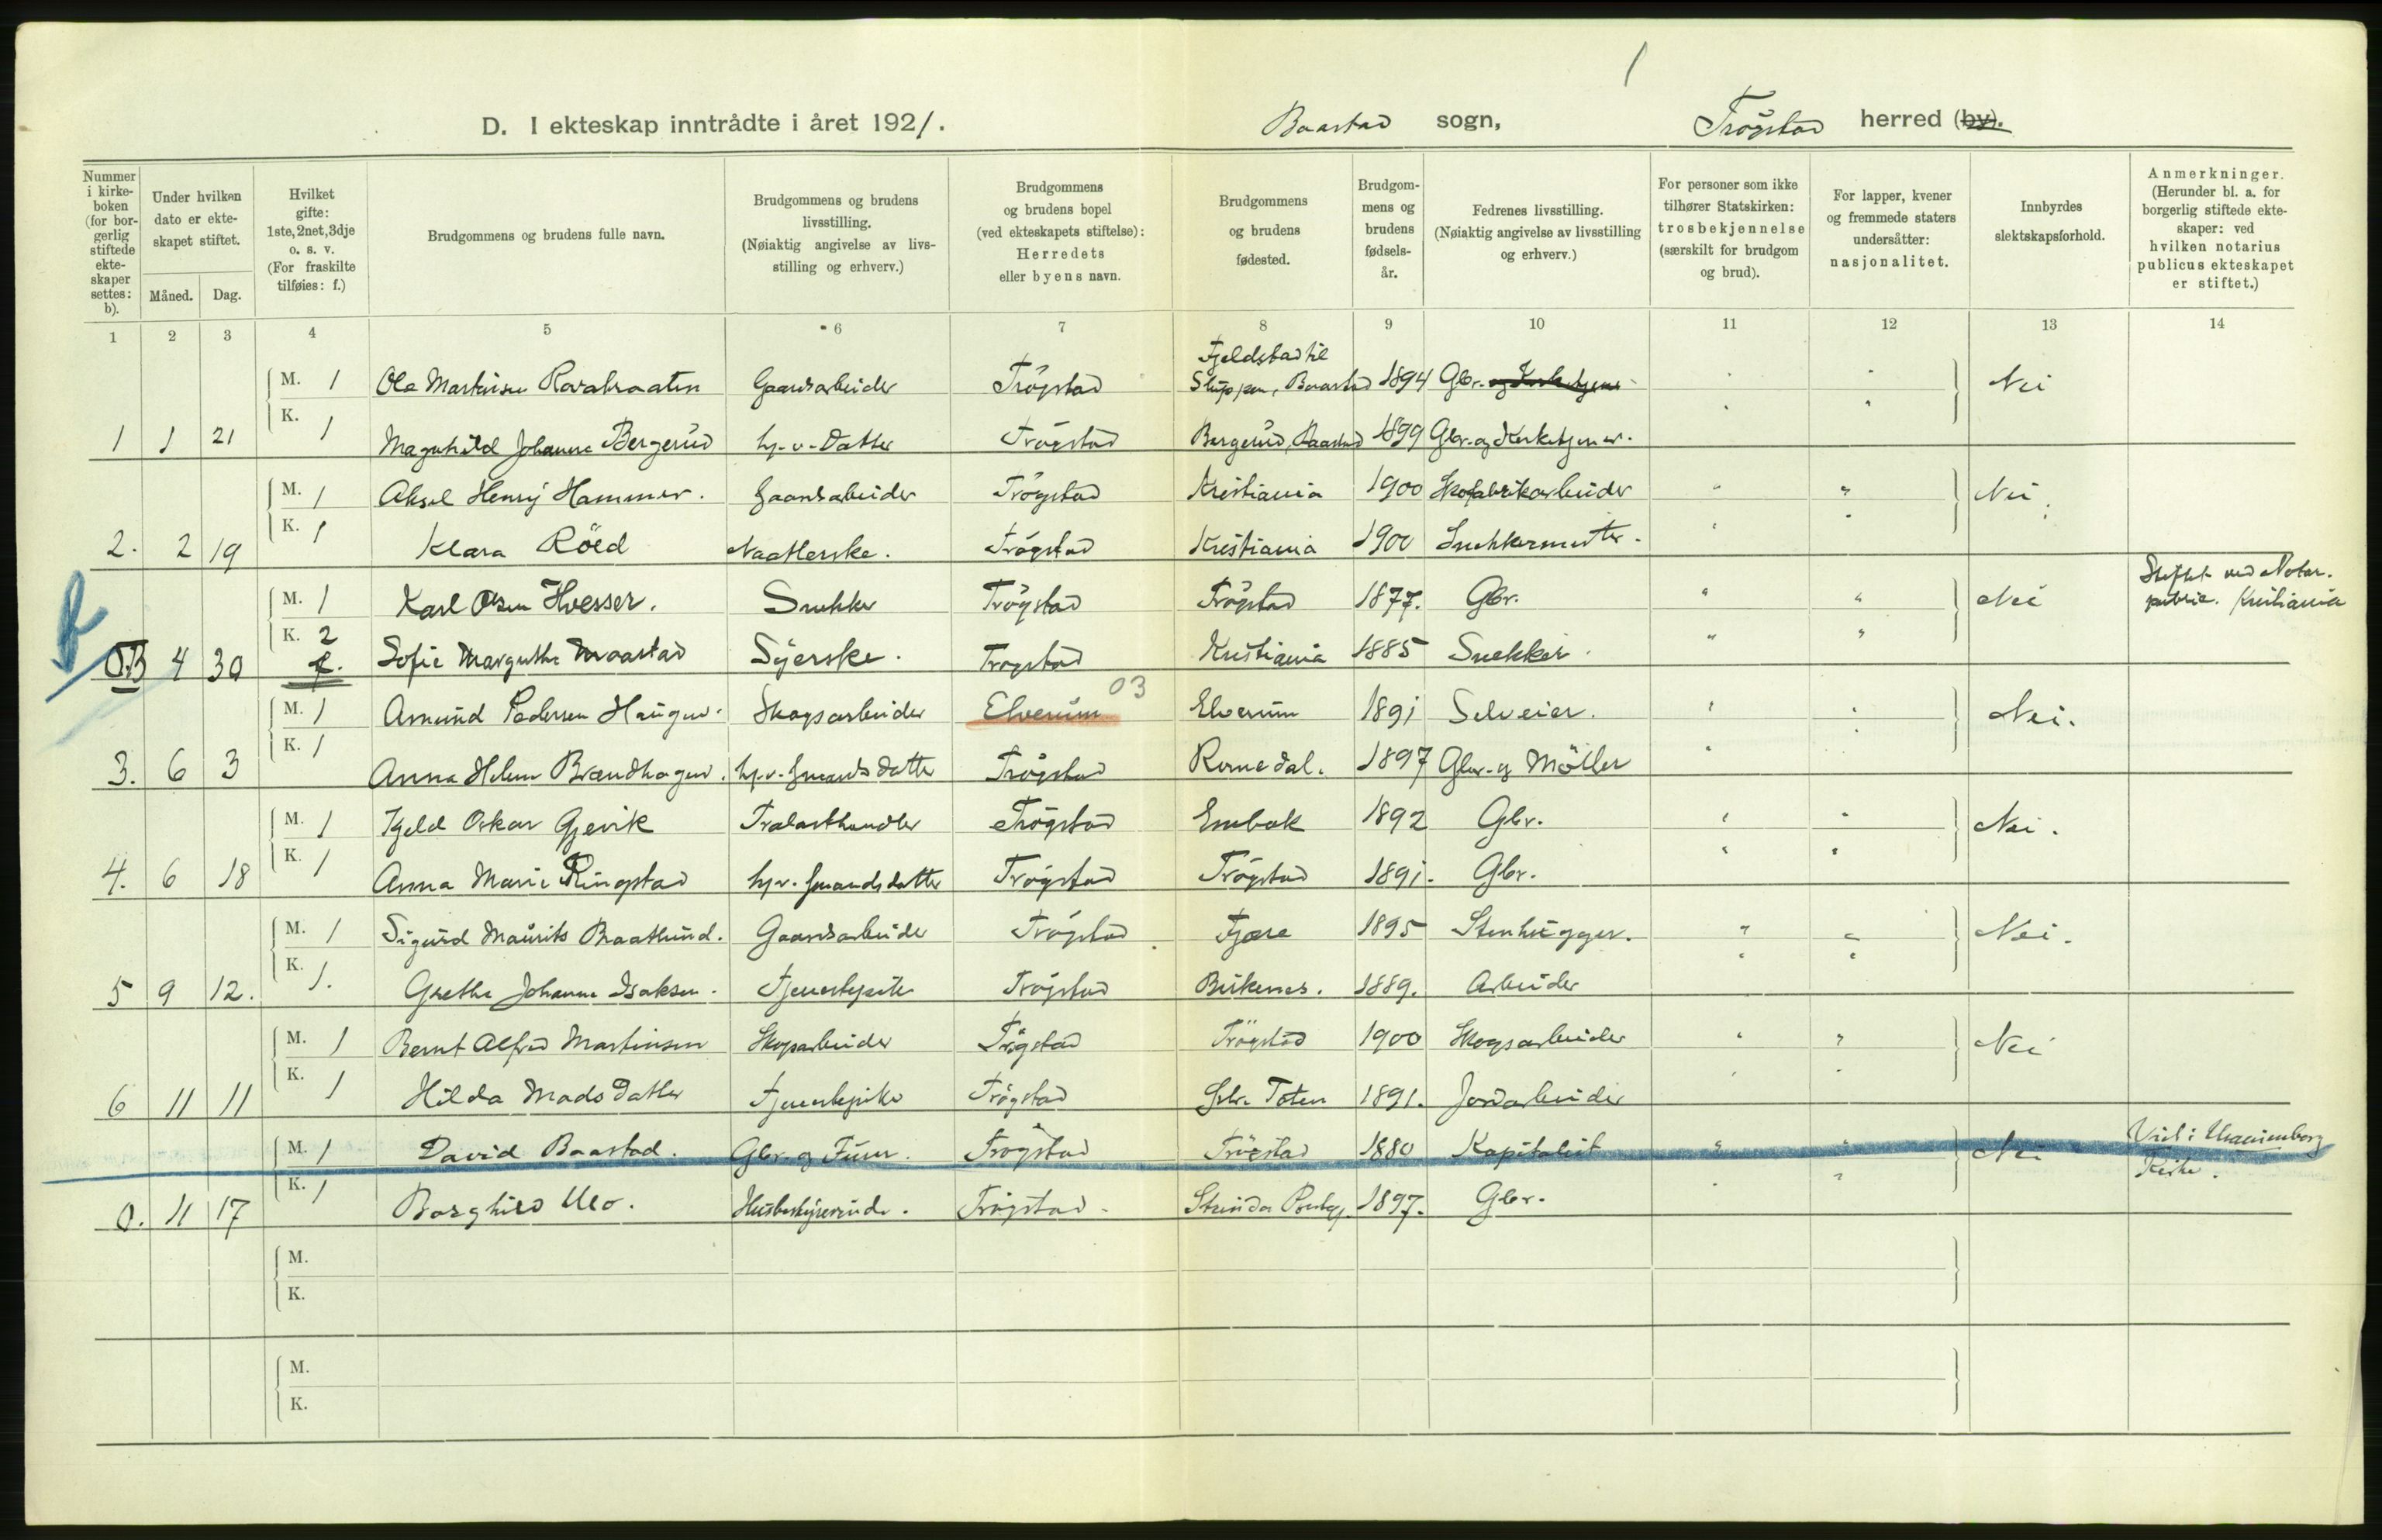 1
D. I ekteskap inntrådte i året 1921. Baastad sogn, Trögstad herred (by).
Nummer i kirkeboken (for borgerlig stiftede ekteskaper settes: b).
Under hvilken dato er ekteskapet stiftet.
Måned. Dag.
Hvilket gifte: 1ste, 2net, 3dje o. s. v. (For fraskilte tilføies: f.)
Brudgommens og brudens fulle navn.
Brudgommens og brudens livsstilling. (Nøiaktig angivelse av livsstilling og erhverv.)
Brudgommens og brudens bopel (ved ekteskapets stiftelse): Herredets eller byens navn.
Brudgommens og brudens fødested.
Brudgommens og brudens fødselsår.
Fedrenes livsstilling. (Nøiaktig angivelse av livsstilling og erhverv.)
For personer som ikke tilhører Statskirken: trosbekjennelse (særskilt for brudgom og brud).
For lapper, kvener og fremmede staters undersåtter: nasjonalitet.
Innbyrdes slektskapsforhold.
Anmerkninger. (Herunder bl. a. for borgerlig stiftede ekteskaper: ved hvilken notarius publicus ekteskapet er stiftet.)
1 2 3 4 5 6 7 8 9 10 11 12 13 14
Fjeldstad til
M. 1 Ola Martinsen Gaardsarbeider Trögstad Baastad 1894 Gbr. " " Nei
1 1 21 K. 1 Magnhild Johanne Bergerud hj.v. Datter Trögstad Bergerud, Baastad 1899 Gbr. og Kirketjener. " "
M. 1 Aksel Henry Hammer. Gaardsarbeider Trögstad Kristiania 1900 Skofabrikarbeider " " Nei.
2. 2 19 K. 1 Klara Röed Trögstad Kristiania 1900 Snekkermester. " "
M. 1 Karl Olsen Hvesser. Snekker Trögstad Trögstad 1877. Gbr. " " Nei Stiftet ved Notar.
public. Kristiania
O.B 4 30 K. 2 f. Sofie Margrethe Syerske. Trögstad Kristiania 1885 Snekker. " "
03
M. 1 Amund Pedersen Haugen. Skogsarbeider Elverum Elverum 1891 Selveier. " " Nei.
3. 6 3 K. 1 Anna Helene Brændhagen. hj.v. Gaardsdatter Trögstad Romedal. 1897 Gbr. og Möller " "
M. 1 Kjeld Oskar Gjevik Trælasthandler Trögstad Enebak 1892 Gbr. " " Nei.
4. 6 18 K. 1 Anna Marie Ringstad hj.v. Gaardsdatter Trögstad Trögstad 1891. Gbr. " "
M. 1 Sigurd Maurits Braatlund. Gaardsarbeider Trögstad Fjære 1895 Stenhugger. " " Nei.
5 9 12. K. 1. Grethe Johanne Isaksen. Tjenestepike Trögstad Birkenes. 1889. Arbeider " "
M. 1 Bernt Alfred Martinsen Skogsarbeider Trögstad Trögstad 1900 Skogsarbeider " " Nei
6 11 11 K. 1 Hilda Madsdatter Tjenestepike Trögstad Toten 1891. Jordarbeider " "
M. 1 David Baastad. Gbr. og Trögstad Trögstad 1880 Kapitalist " " Nei Viet i Uranienborg
Kirke.
O. 11 17 K. 1 Borghild Moe. Husbestyrerinde. Trögstad. Strinda 1897. Gbr. " "
M.
K.
M.
K.